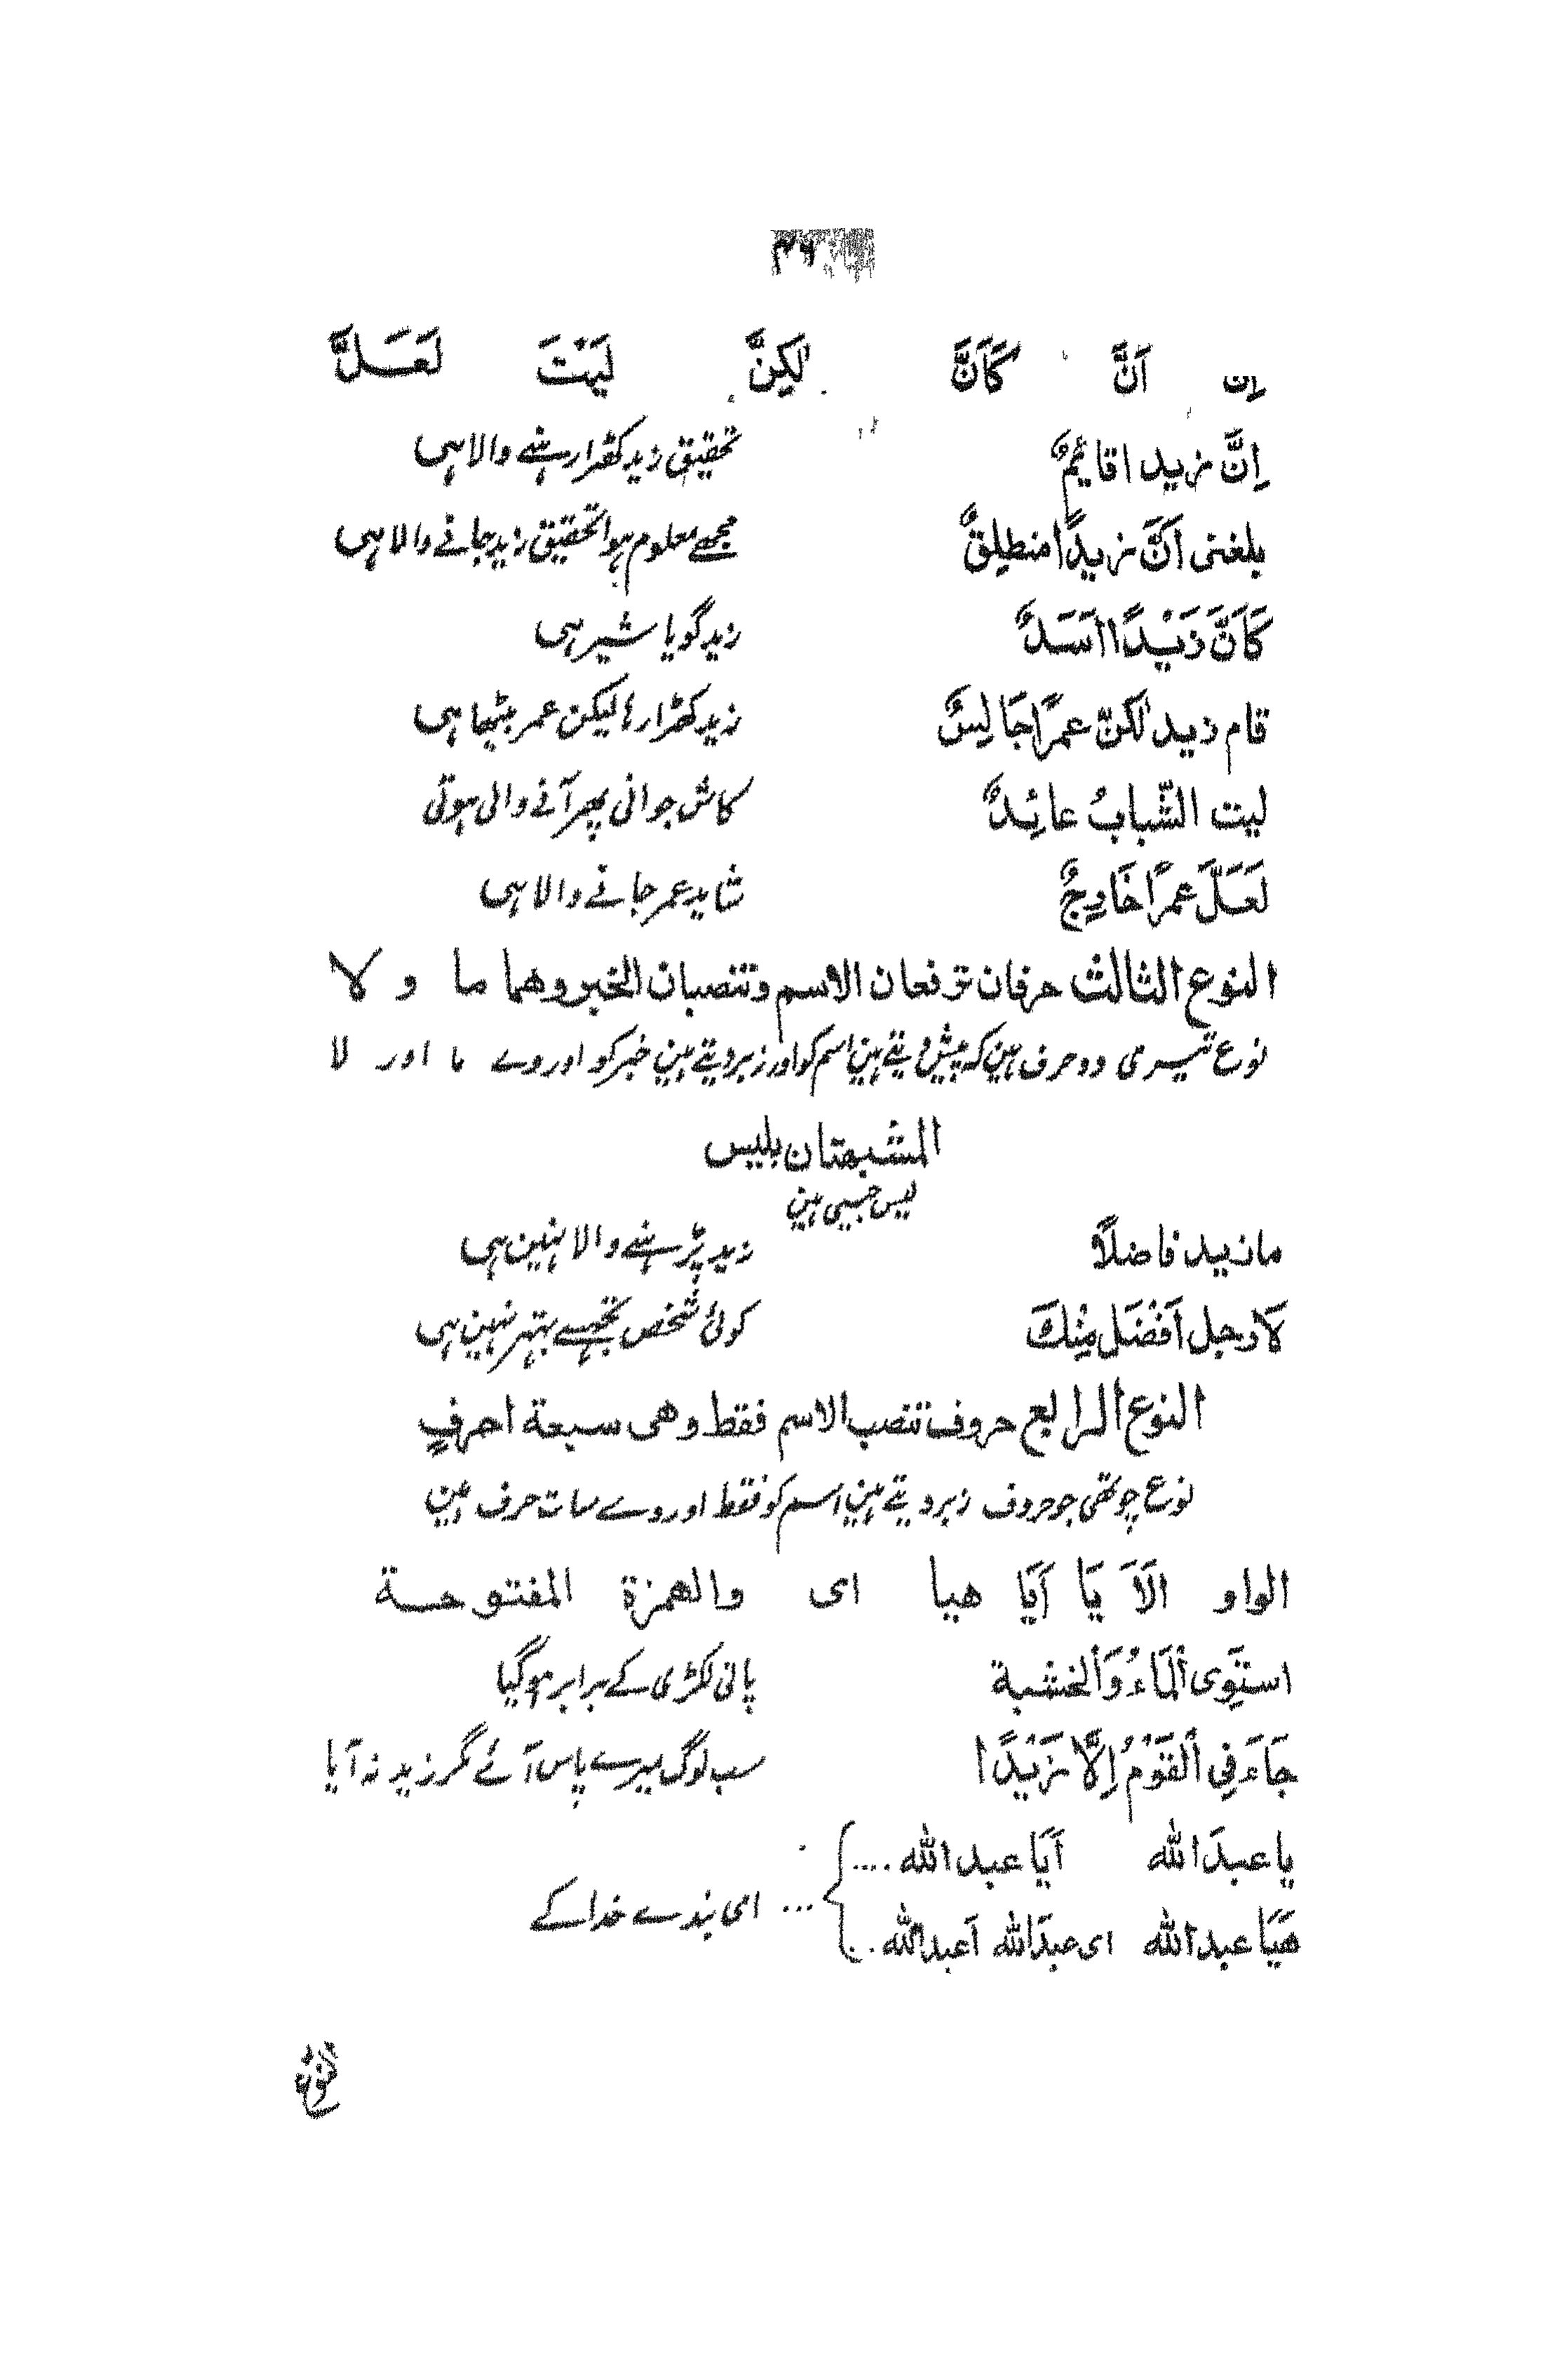 ۴۶
اِن اَنَّ كَاَنَّ لٰكِنَّ لَيْتَ لَعَلَّ
اِنَّ زيدا قائِمٌ تحقیق زید کھڑا رہنے والا ہی
بلغنی اَنَّ زيدًا منطلِقٌ مجھے معلوم ہوا تحقیق زید جانے والا ہی
كَاَنَّ زَيْدًا اَسَدٌ زید گویا شیر ہی
قام زيد لٰكنّ عمرًا جَالِسٌ زید کھڑا رہا لیکن عمر بیٹھا ہی
ليت الشّبابُ عائِدٌ کاش جوانی پھر آنے والی ہوتی
لَعَلَّ عمرًا خَارِجٌ شاید عمر جانے والا ہی
النوع الثالث حرفان ترفعان الاسم وتنصبان الخبر وهما ما و لا
نوع تیسری دو حرف ہین کہ پیش دیتے ہین اسم کو اور زبر دیتے ہین خبر کو اور وے ما اور لا
المشبهتان بليس
لیس جیسی ہین
ما زيد فاضلًا زید پڑہنے والا نہین ہی
لَا رجل اَفْضَل مِنْكَ کوئی شخص تجھسے بہتر نہین ہی
النوع الرابع حروف تنصب الاسم فقط وهى سبعة احرفٍ
نوع چوتھی جو حروف زبر دیتے ہین اسم کو فقط اور وے سات حرف ہین
الواو الَاَ يَا اَيَا هيا ای والهمزة المفتوحة
استَوِى اْلمَاءُ وَاْلخشبة پانی لکڑی کے برابر ہو گیا
جَاءَنِى اْلقَوْمُ اِلَّا زَيْدًا سب لوگ میرے پاس آئے مگر زید نہ آیا
يا عبدَ الله اَيَا عبد الله ....
هَيَا عبد الله ای عبدَ الله اَعبد الله . ... ای بندے خدا کے